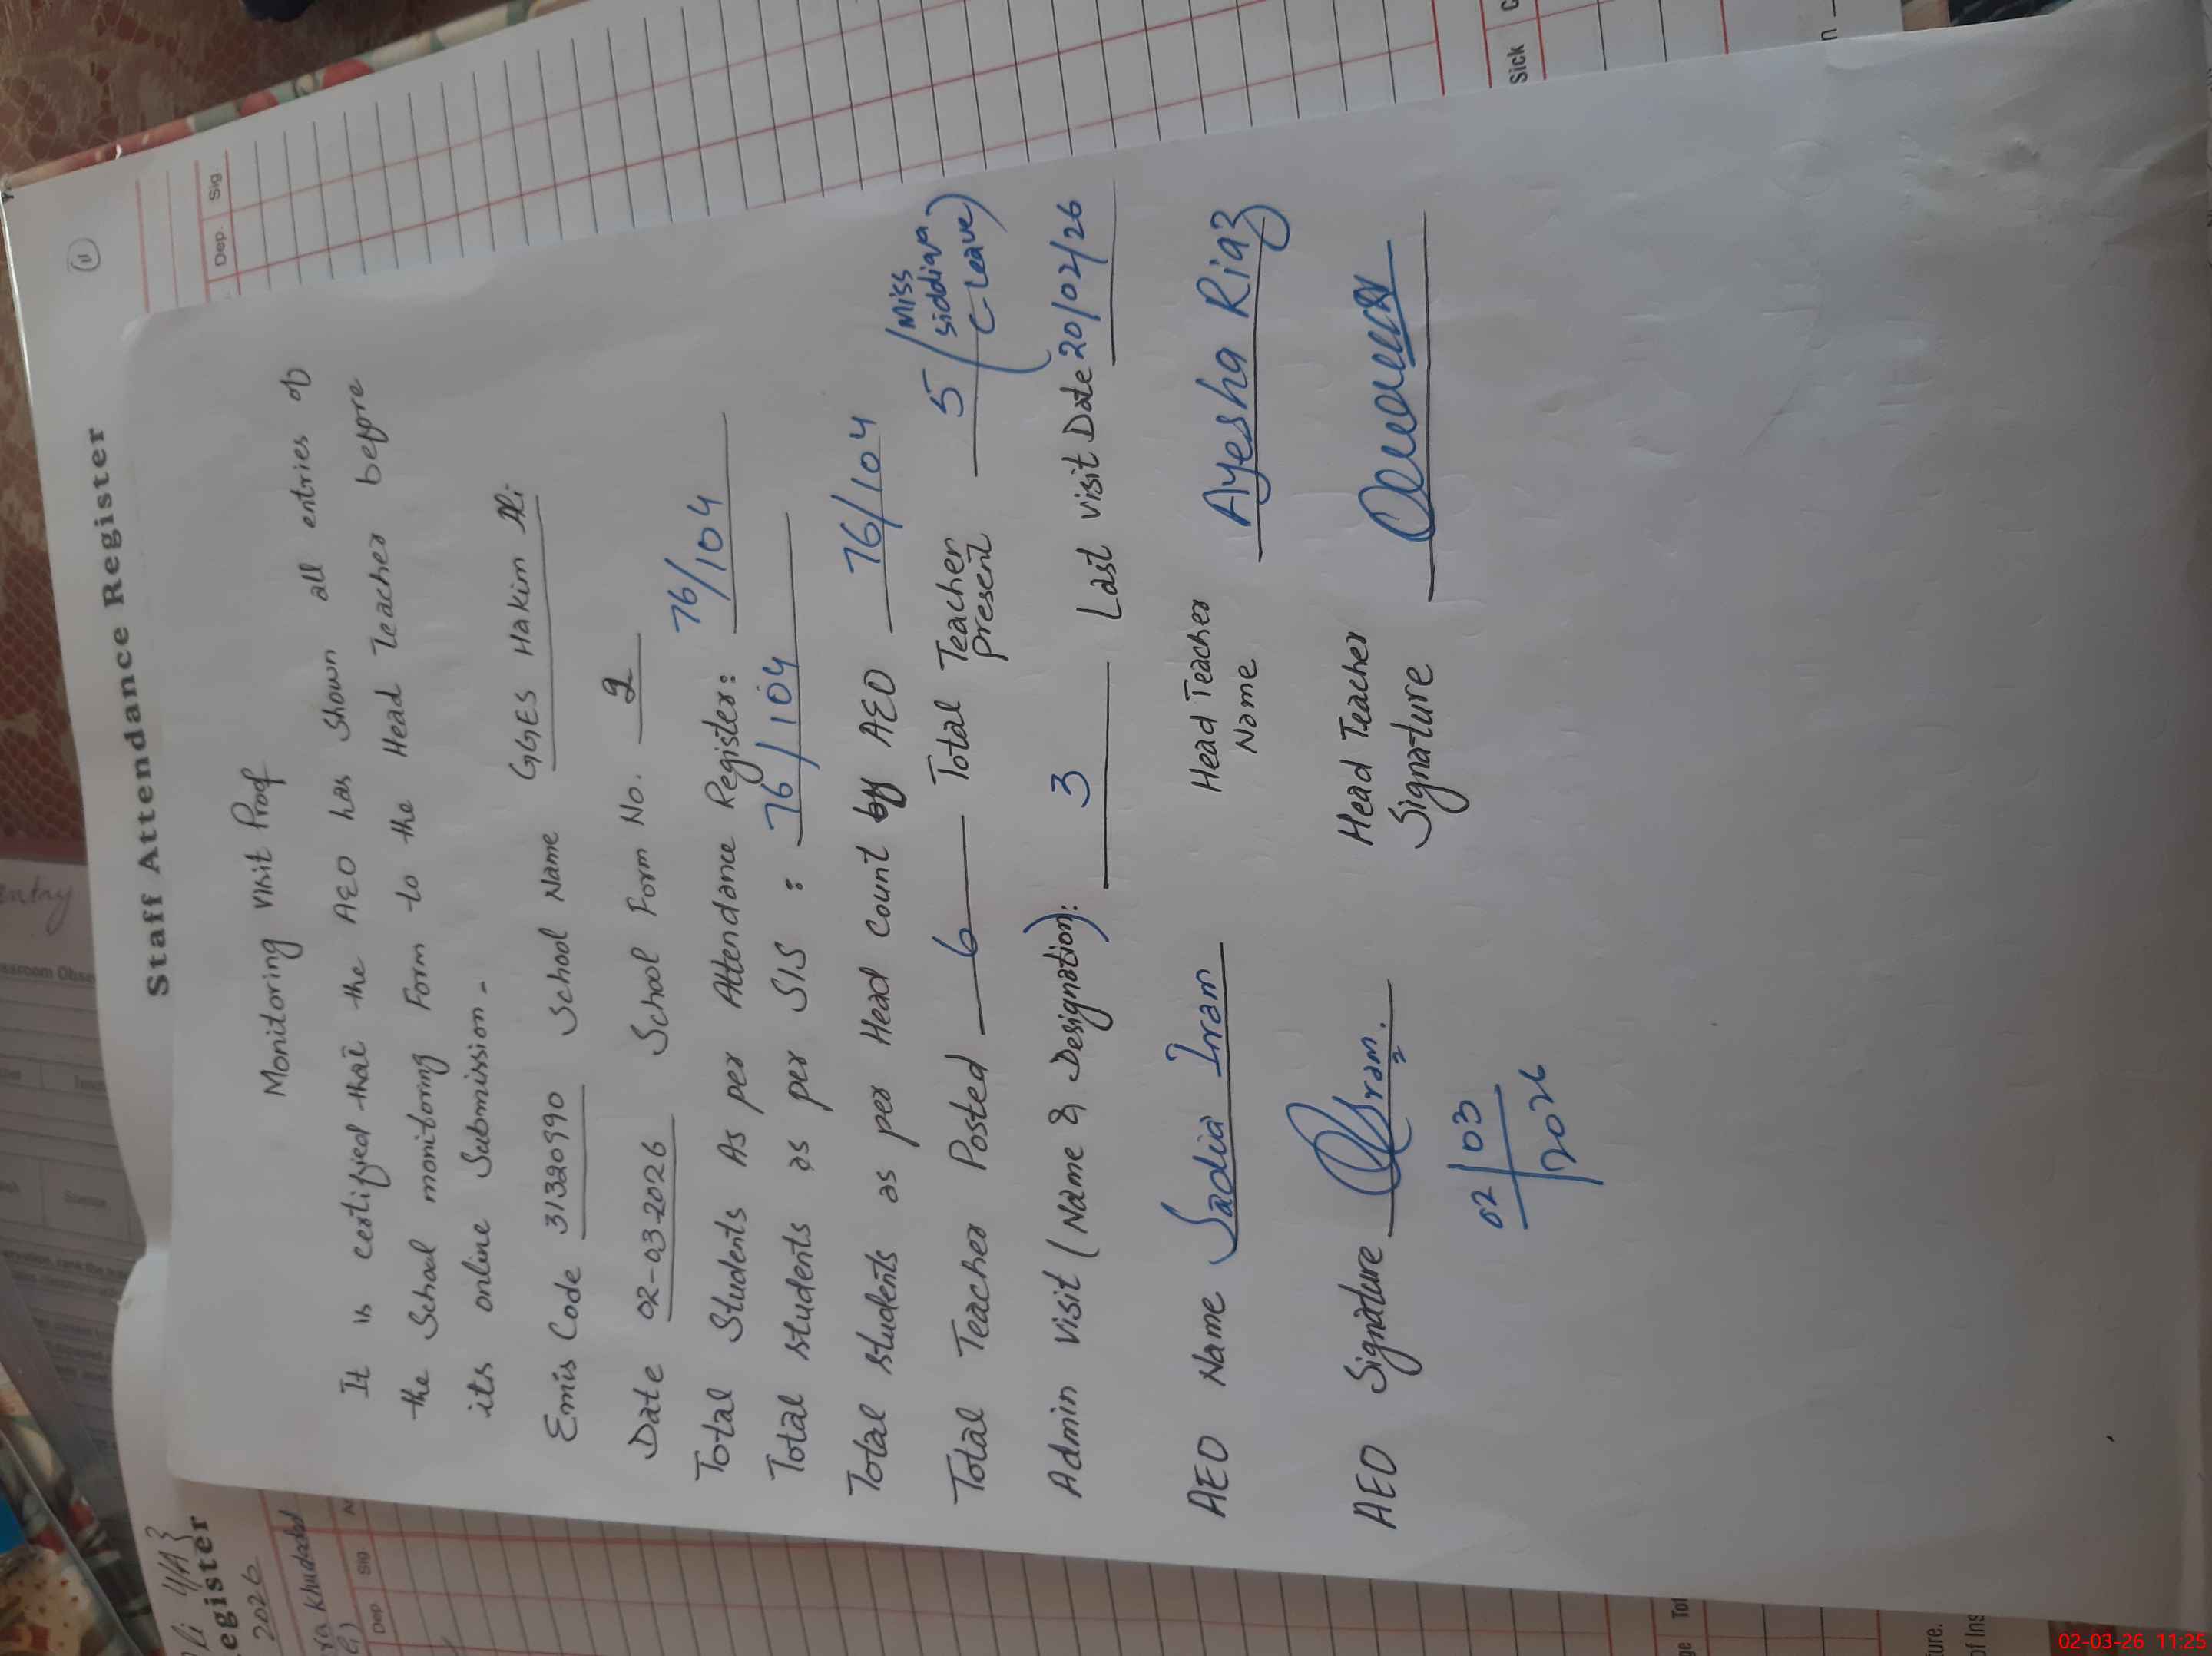 Staff Attendance Register
11
Dep. Sig.
Monitoring visit Proof
It is certified that the AEO has shown all entries of
the School monitoring Form to the Head Teacher before
its online Submission.
Emis Code 31320990 School Name GGES Hakim Ali
Date 02-03-2026 School Form No. 2
Total Students As per Attendance Register: 76/104
Total students as per SIS : 76/104
Total students as per Head count by AEO 76/104
Total Teacher Posted 6 Total Teacher present 5 (Miss siddiqa C-leave)
Admin visit (Name & Designation): 3 Last visit Date 20/02/26
AEO Name Sadia Iram Head Teacher Name Ayesha Riaz
AEO Signature Head Teacher Signature
02/03
2026
egister
2026
Khudadad
Dep Sig
Sick
02-03-26 11:25